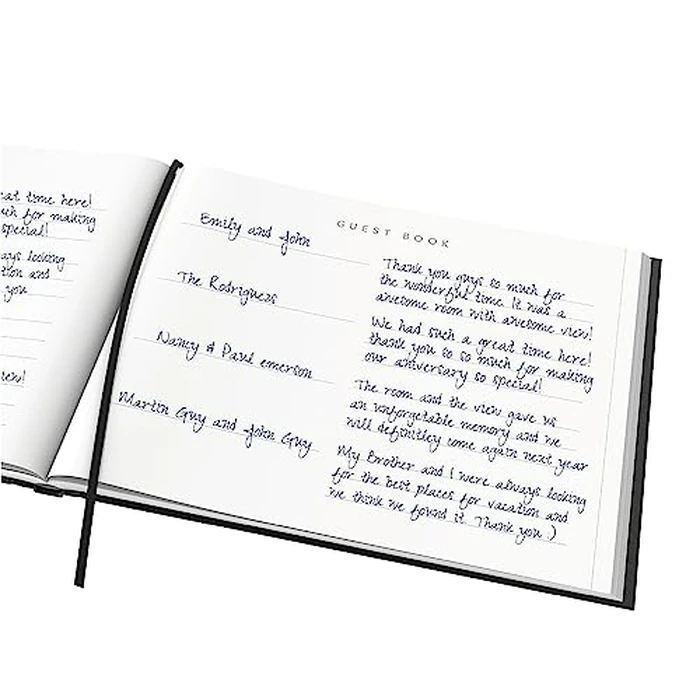 time here!
for making
special!
looking
and
you
GUEST BOOK
Emily and John
Thank you guys so much for
the wonderful time. It was a
awesome room with awesome view!
The Rodriguezs
We had such a great time here!
thank you so so much for making
our aniversary so special!
Nancy & Paul emerson
The room and the view gave us
an unforgetable memory and we
will definitley come again next year
Martin Guy and John Guy
My Brother and I were always looking
for the best places for vacation and
we think we found it. Thank you :)